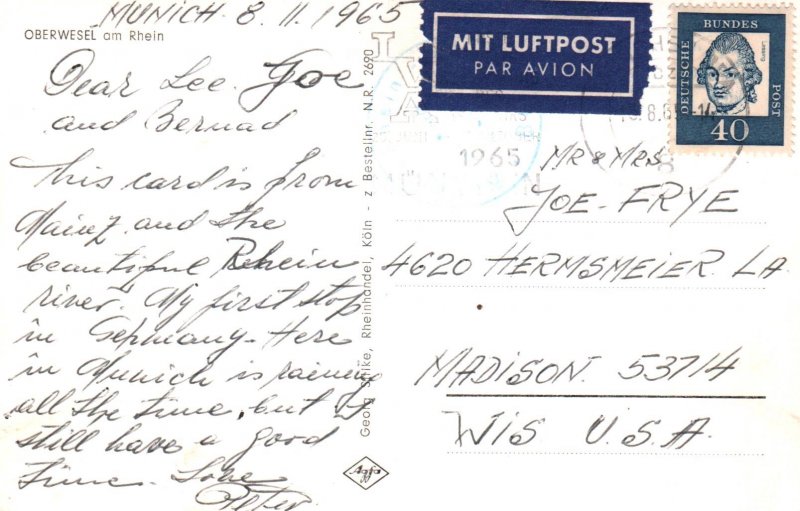 MUNICH 8.11.1965
OBERWESEL am Rhein
Dear Lee. Joe
and Bernad
This card is from
Mainz and the
beautiful Rhein
river. My first stop
in Germany. Here
in Munich is raining
all the time, but I
still have a good
time. Love
Peter
Georg Stilke, Rheinhandel, Köln - z Bestellnr. N.R. 2690
Agfa
MIT LUFTPOST
PAR AVION
DEUTSCHE
BUNDES
POST
Lessing
40
1965
MÜNCHEN
MR & MRS
JOE - FRYE
4620 HERMSMEIER LA
MADISON. 53714
WIS U.S.A.